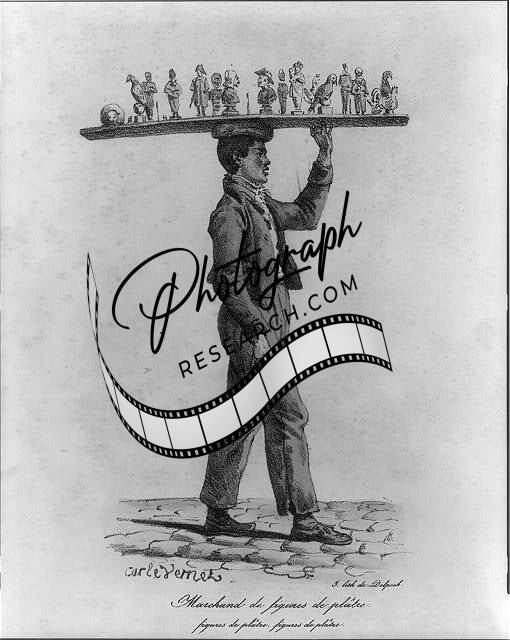 Photograph
RESEARCH.COM
Carle Vernet
I. lith. de Delpech
Marchand de figures de plâtre.
figures de plâtre, figures de plâtre.